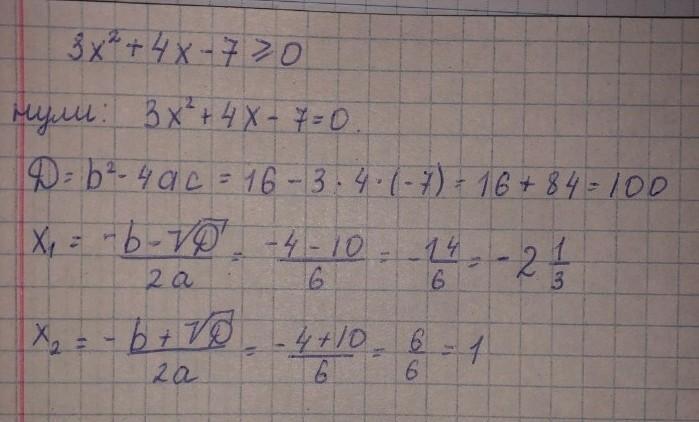 3x² + 4x - 7 ≥ 0
нули: 3x² + 4x - 7 = 0.
D = b² - 4ac = 16 - 3 · 4 · (-7) = 16 + 84 = 100
x₁ = (-b - √D)/(2a) = (-4 - 10)/6 = -14/6 = -2 1/3
x₂ = (-b + √D)/(2a) = (-4 + 10)/6 = 6/6 = 1